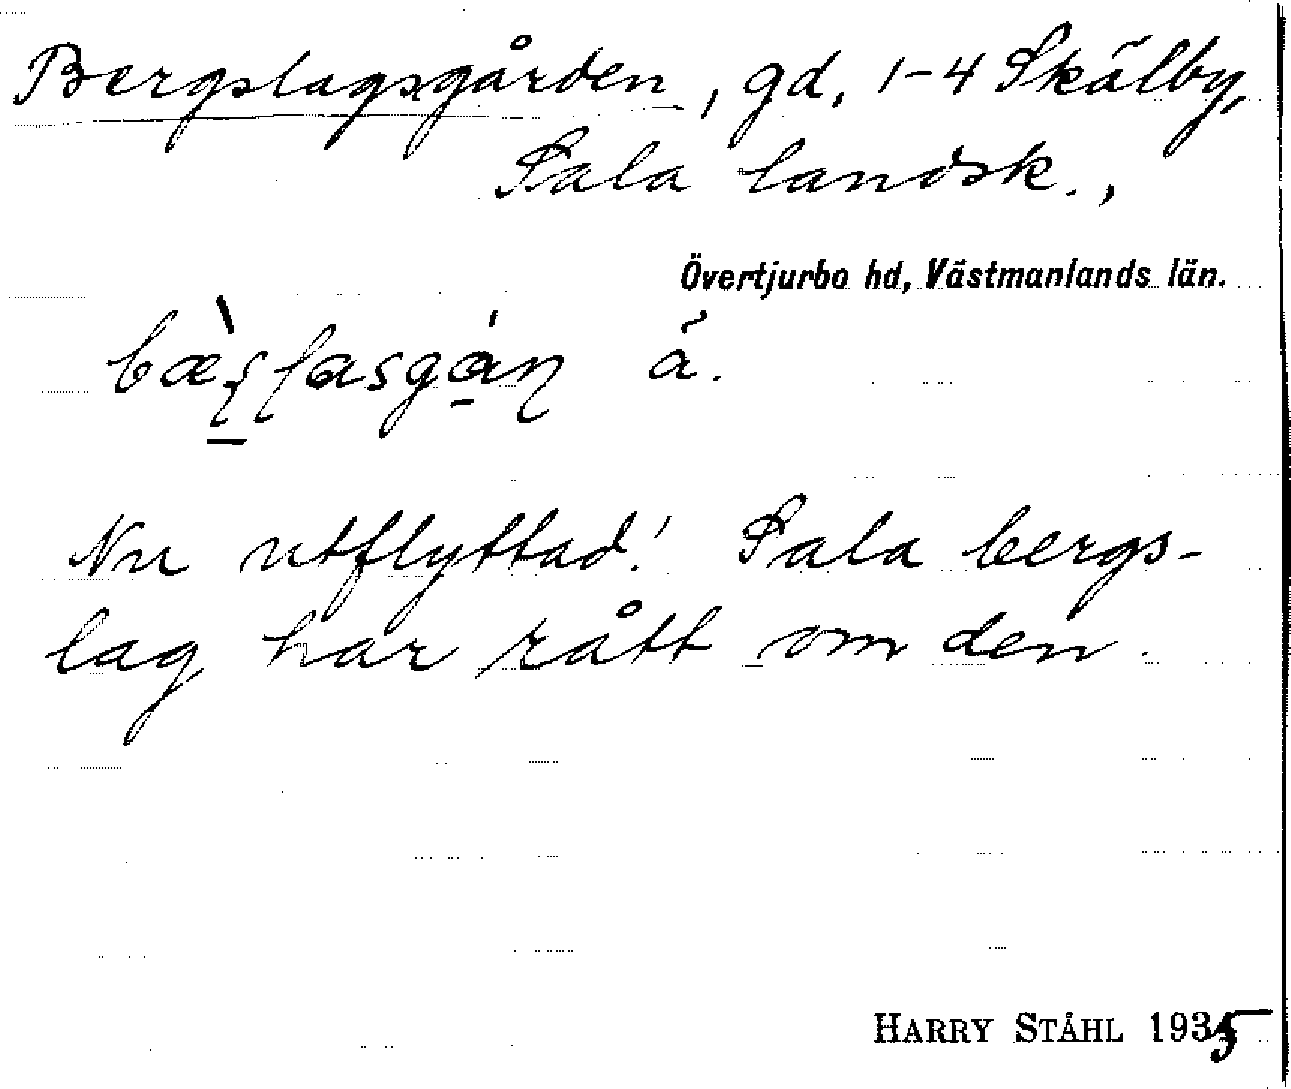 Bergslagsgården, gd, 1-4 Skälby,
Sala landsk.,
Övertjurbo hd, Västmanlands län.
ã.
Nu utflyttad! Sala bergs-
lag har rått om den.
HARRY STÅHL 1935